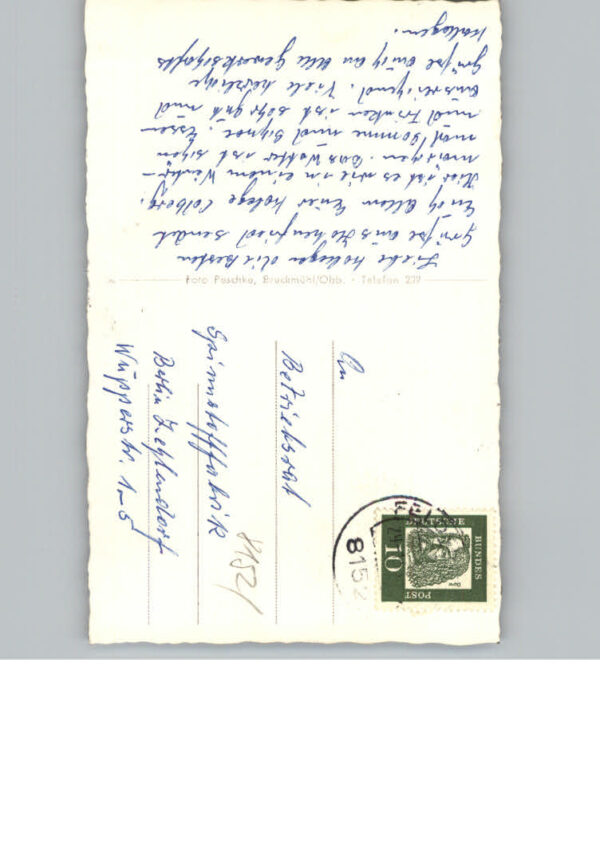 Liebe Kollegen die besten
Grüße aus Hohenfried sendet
Euch allem Euer Kollege Colberg.
Hier ist es wie in einem Winter-
märchen. Das Wetter ist schön
mal Sonne und Schnee. Essen
und Trinken ist sehr gut und
ausreichend. Viele herzliche
Grüße auch an alle Gewerkschafts
Kollegen.
Foto Paschka, Bruckmühl/Obb. · Telefon 239
An
Betriebsrat
Spinnstofffabrik
Berlin Zehlendorf
Wupperstr. 1–5
8152/
8152
DEUTSCHE
BUNDES
POST
10